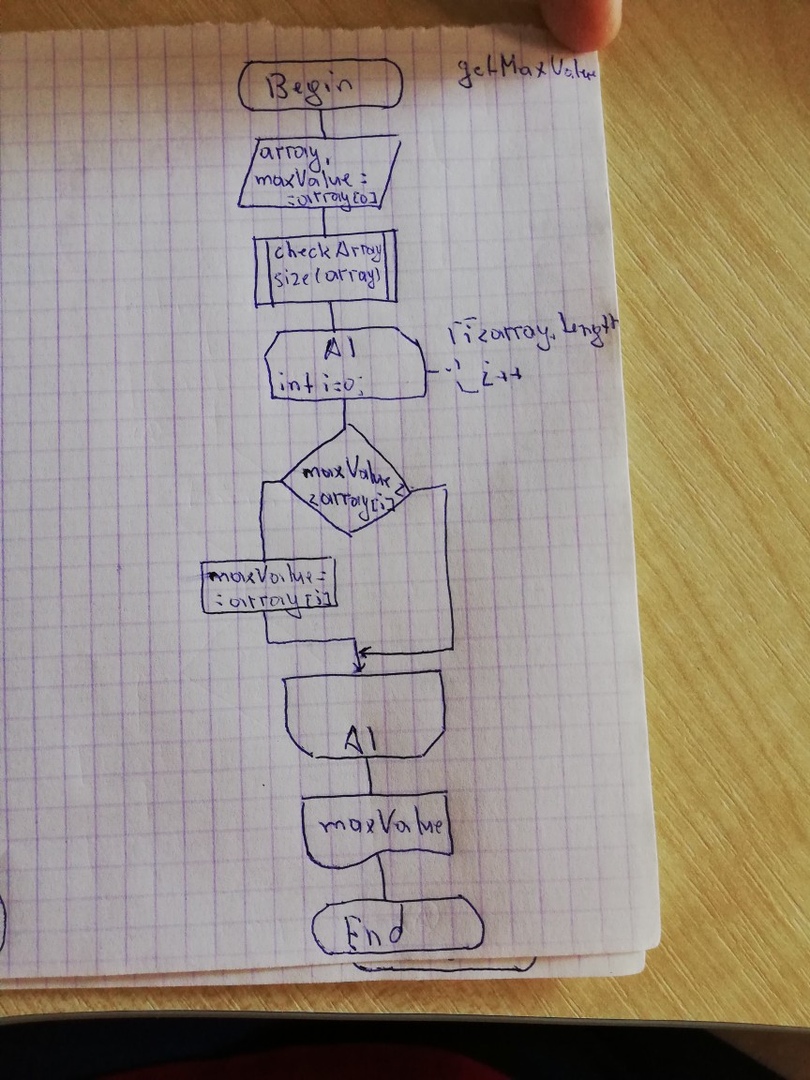 getMaxValue
Begin
array,
maxValue =
= array[0]
checkArray
size(array)
A1
int i=0;
i<array.length
i++
maxValue <
<array[i]
maxValue =
= array[i]
A1
maxValue
End